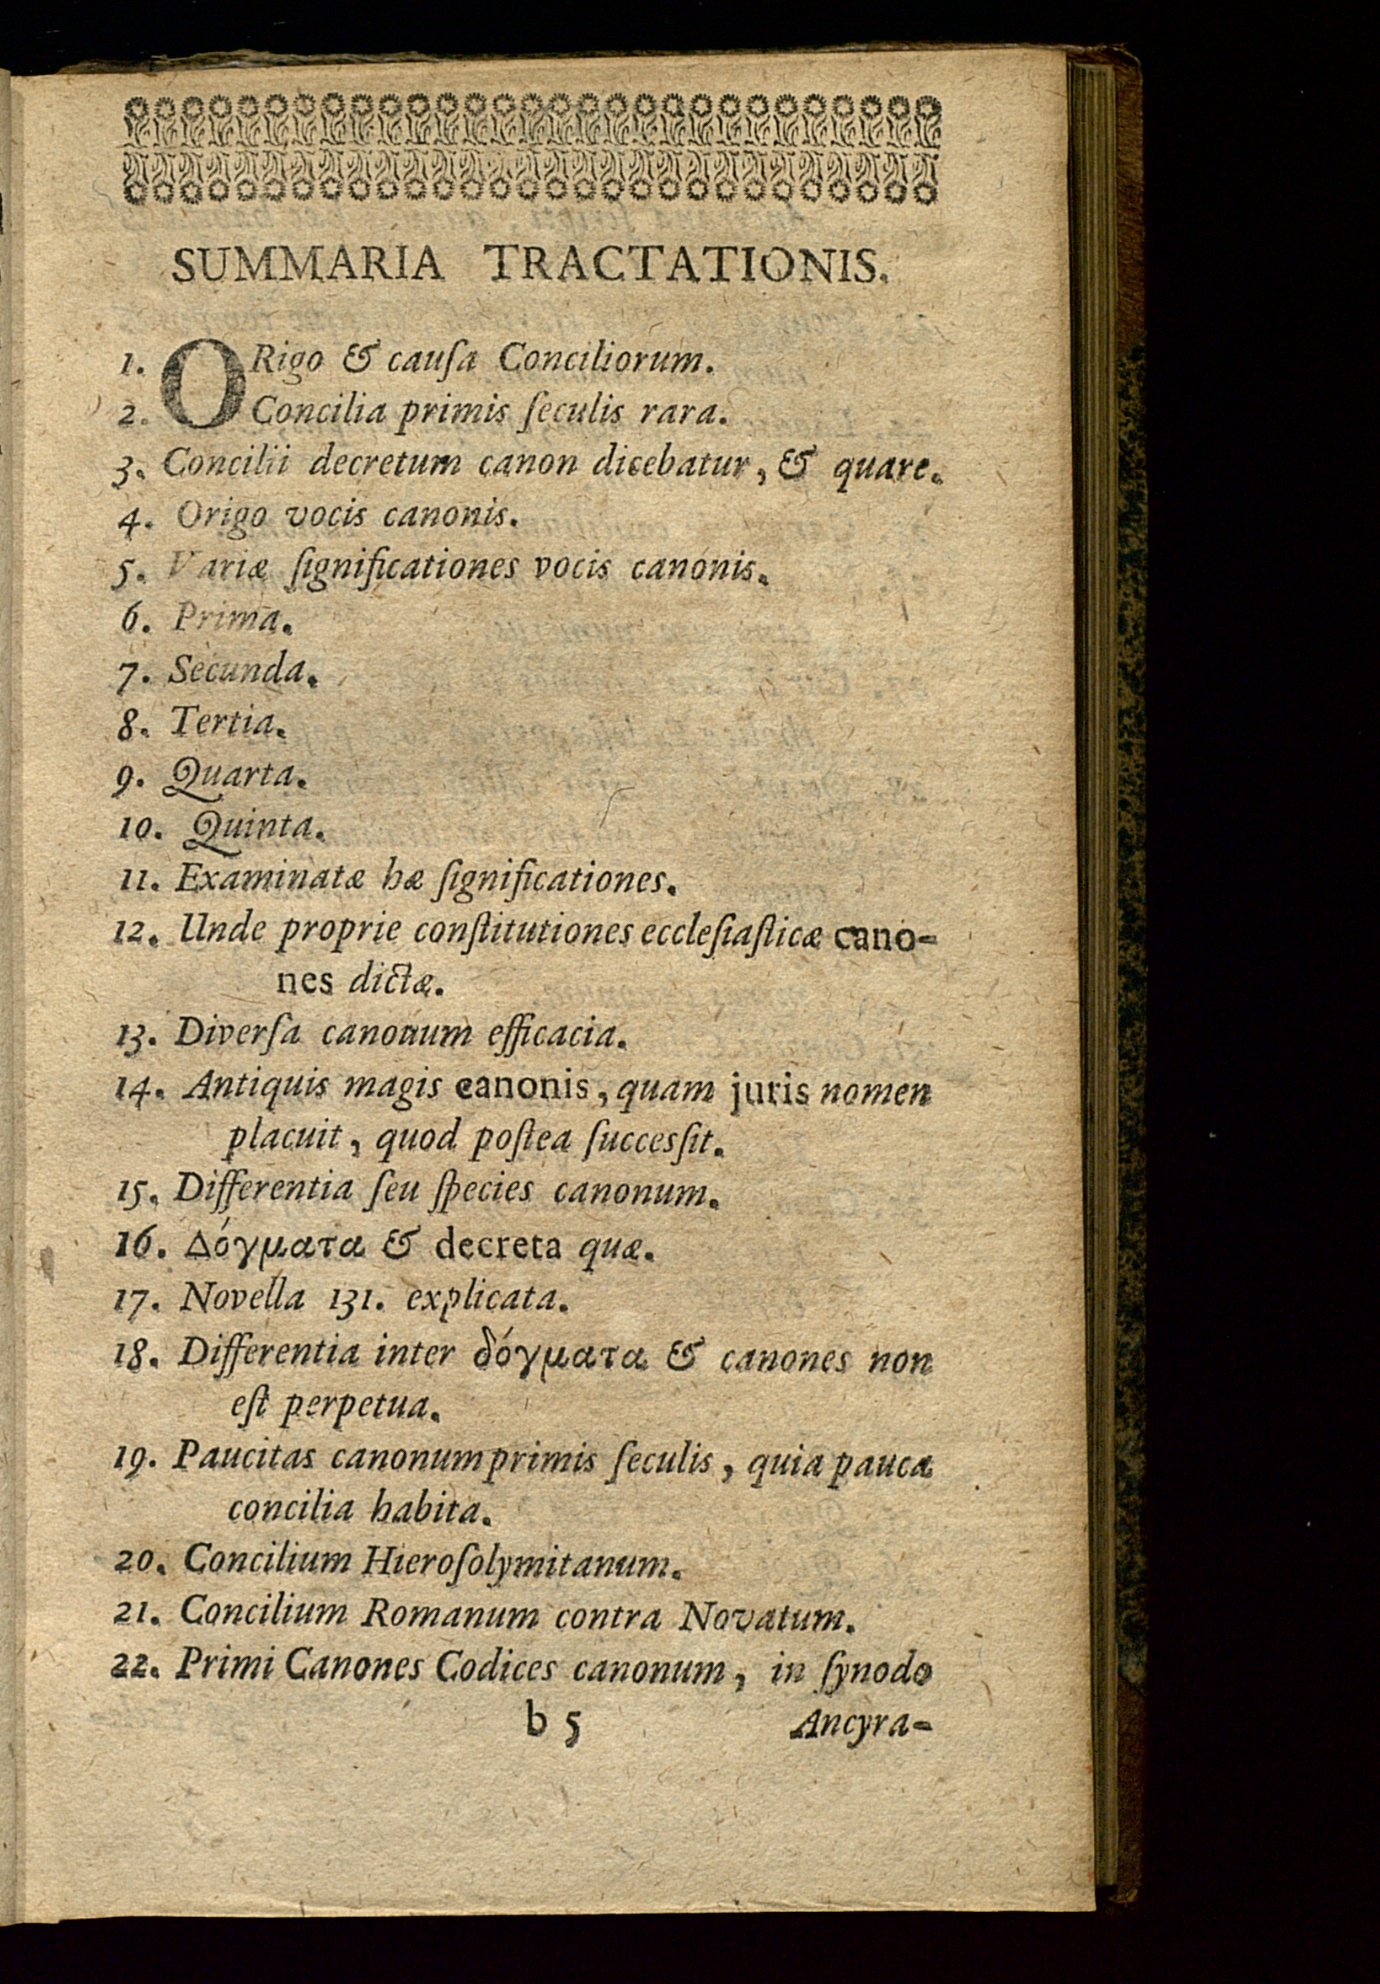 SUMMARIA TRACTATIONIS.
1. ORigo & cauſa Conciliorum.
2. Concilia primis ſeculis rara.
3. Concilii decretum canon dicebatur, & quare.
4. Origo vocis canonis.
5. Variæ ſignificationes vocis canonis.
6. Prima.
7. Secunda.
8. Tertia.
9. Quarta.
10. Quinta.
11. Examinatæ hæ ſignificationes.
12. Unde proprie conſtitutiones eccleſiaſticæ cano-
nes dictæ.
13. Diverſa canonum efficacia.
14. Antiquis magis canonis, quam juris nomen
placuit, quod poſtea ſucceſſit.
15. Differentia ſeu ſpecies canonum.
16. Δόγματα & decreta quæ.
17. Novella 131. explicata.
18. Differentia inter δόγματα & canones non
eſt perpetua.
19. Paucitas canonum primis ſeculis, quia pauca
concilia habita.
20. Concilium Hieroſolymitanum.
21. Concilium Romanum contra Novatum.
22. Primi Canones Codices canonum, in ſynodo
b 5 Ancyra-